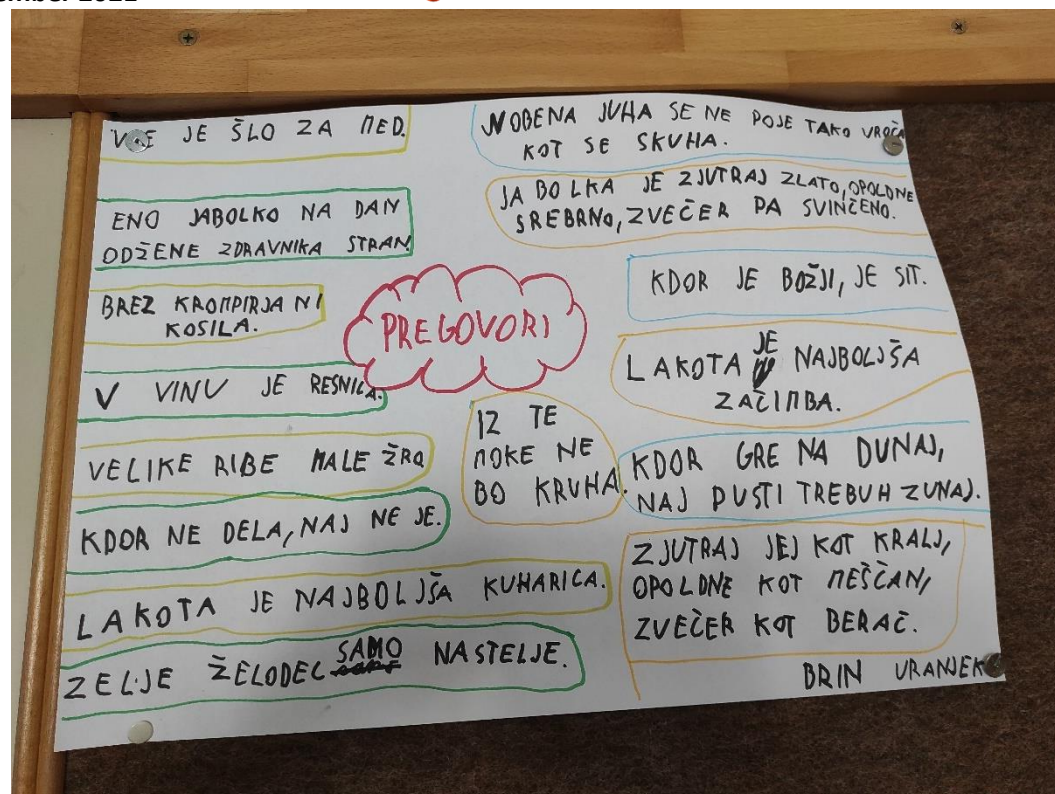 JE ŠLO ZA MED.
ENO JABOLKO NA DAN
ODŽENE ZDRAVNIKA STRAN.
BREZ KROMPIRJA NI
KOSILA.
V VINU JE RESNICA.
VELIKE RIBE MALE ŽRO
KDOR NE DELA, NAJ NE JE.
LAKOTA JE NAJBOLJŠA KUHARICA.
ZELJE ŽELODEC SAMO NASTELJE.
PREGOVORI
IZ TE
MOKE NE
BO KRUHA.
NOBENA JUHA SE NE POJE TAKO VROČA
KOT SE SKUHA.
JABOLKA JE ZJUTRAJ ZLATO, OPOLDNE
SREBRNO, ZVEČER PA SVINČENO.
KDOR JE BOŽJI, JE SIT.
LAKOTA JE NAJBOLJŠA
ZAČIMBA.
KDOR GRE NA DUNAJ,
NAJ PUSTI TREBUH ZUNAJ.
ZJUTRAJ JEJ KOT KRALJ,
OPOLDNE KOT MEŠČAN,
ZVEČER KOT BERAČ.
BRIN URANJEK